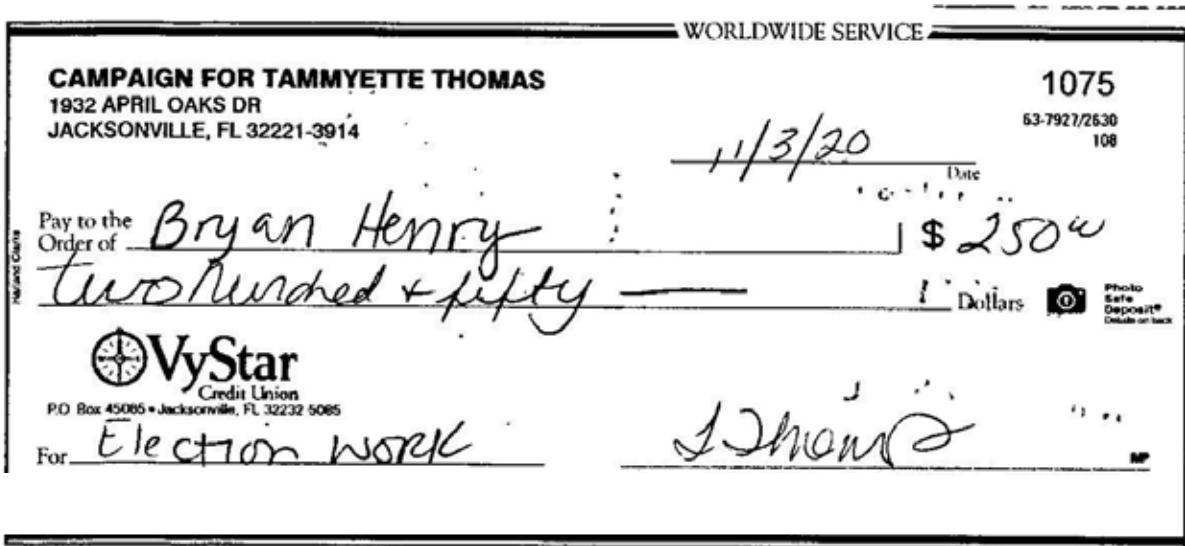 WORLDWIDE SERVICE
CAMPAIGN FOR TAMMYETTE THOMAS
1075
1932 APRIL OAKS DR
JACKSONVILLE, FL 32221-3914
63-7927/2630
108
11/3/20
Date
Pay to the
Order of Bryan Henry $ 250⁰⁰
two hundred & fifty — Dollars
Photo
Safe
Deposit®
Details on back
Harland Clarke
VyStar
Credit Union
P.O Box 45085 • Jacksonville, FL 32232-5085
For Election WORK
T Thomas
MP